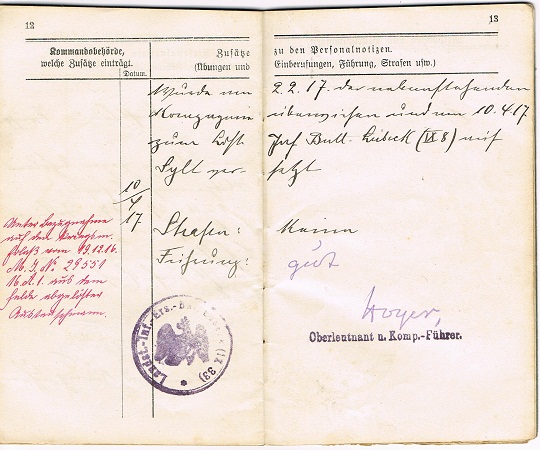 12
Kommandobehörde,
welche Zusätze einträgt.
Datum.
Zusätze
(Übungen und
Wurde am
Kompagnie
zum
Sylt ver-
10/4 17
Strafen:
Führung:
Unter Bezugnahme
auf den Kriegsm.
Erlaß vom 19.12.16.
M. J. No 29551
16. A. 1. aus dem
Felde abgelöster
Landst.-Inf.-Ers.- (IX 33)
13
zu den Personalnotizen.
Einberufungen, Führung, Strafen usw.)
2.2.17. der nebenstehenden
überwiesen und am 10.4.17
Inf. Batl. Lübeck (IX 8) nach
setzt
Keine
gut
Hoyer,
Oberleutnant u. Komp.-Führer.